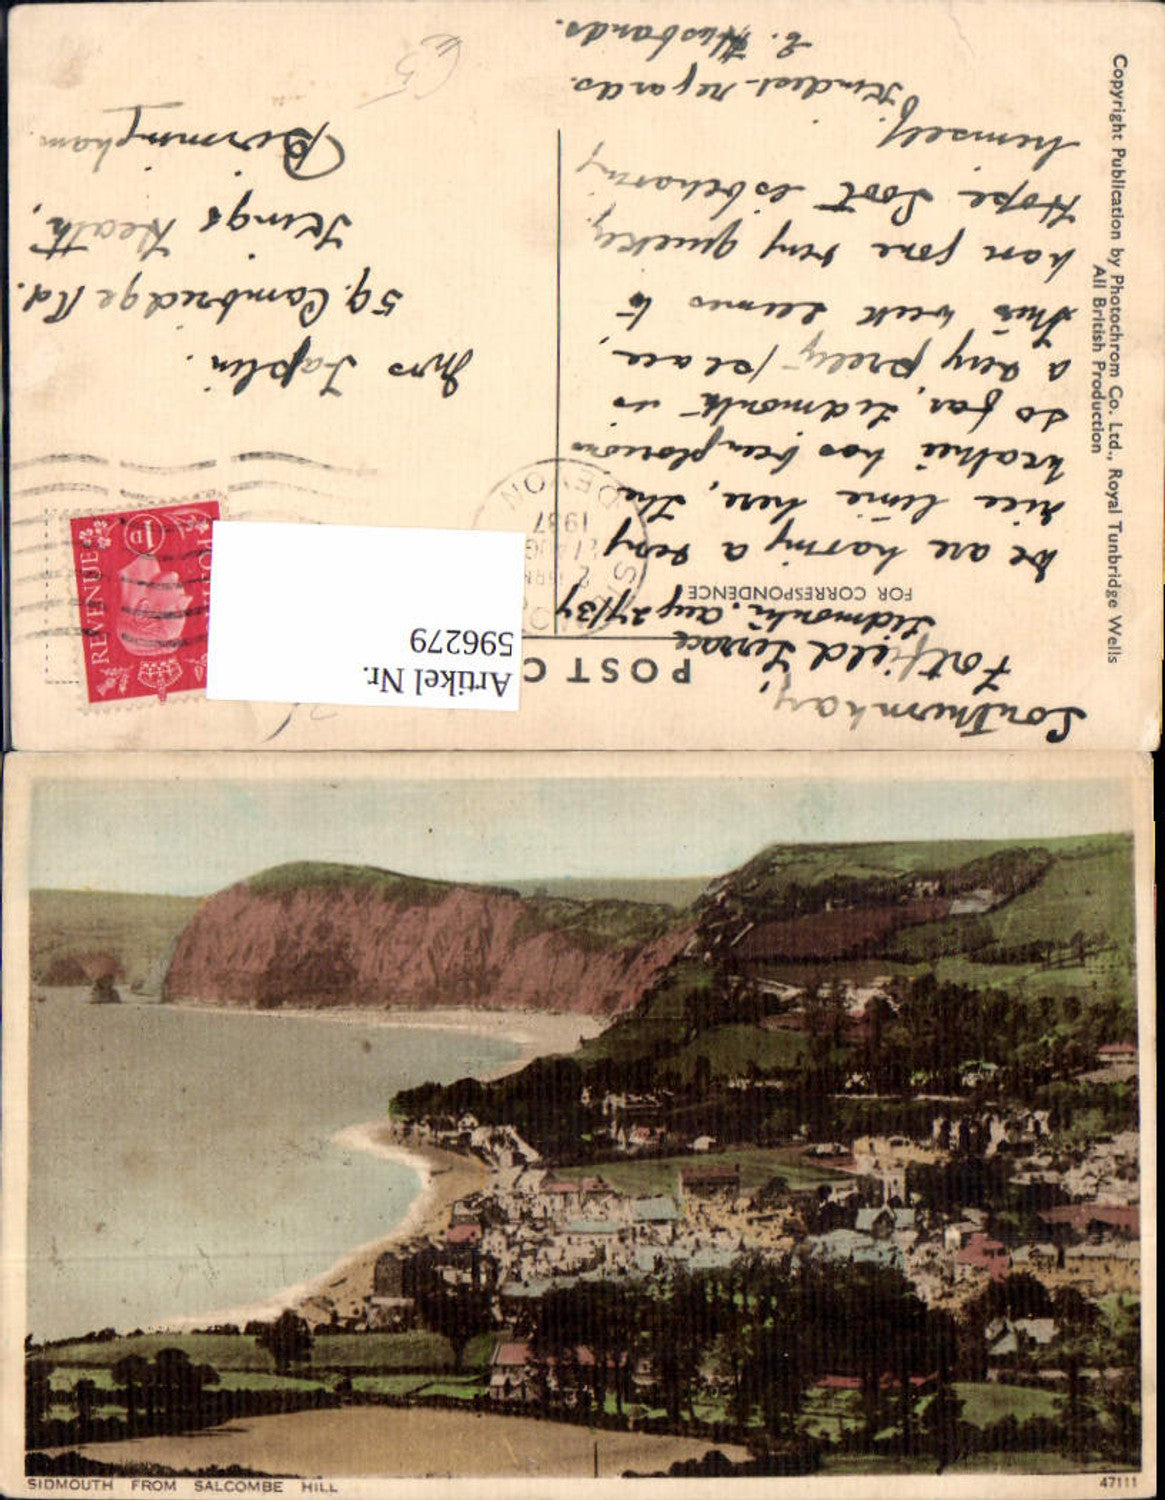 POST C
FOR CORRESPONDENCE
Southernhay,
Fortfield Terrace
Sidmouth. Aug 27/37
We are having a very
nice time here, the
weather has been glorious
so far, Sidmouth is
a very pretty place,
this week seems to
have gone very quickly.
Hope Soot is behaving
himself.
Kindest regards.
E. Husbands.
Mrs Taplin.
59. Cambridge Rd.
Kings Heath,
Birmingham
£5
Artikel Nr.
596279
REVENUE
1D
1937
DEVON
Copyright Publication by Photochrom Co. Ltd., Royal Tunbridge Wells
All British Production
SIDMOUTH FROM SALCOMBE HILL
47111